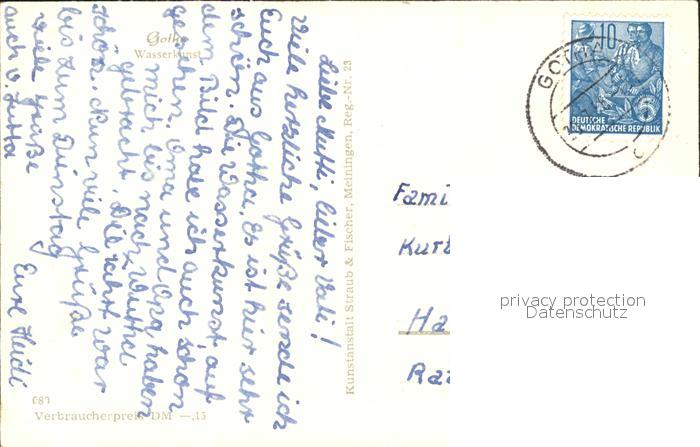 Gotha
Wasserkunst
Liebe Mutti, lieber Vati!
Viele herzliche Grüße sende ich
Euch aus Gotha. Es ist hier sehr
schön. Die Wasserkunst, auf
dem Bild habe ich auch schon
gesehen. Oma und Opa haben
mich bis nach Wutha
gebracht. Die Fahrt war
schön. Nun viele Grüße
bis zum Dienstag
Eure Heidi
viele Grüße
auch v. Jutta
Kunstanstalt Straub & Fischer, Meiningen, Reg.-Nr. 23
Verbraucherpreis DM —,15
10
6
DEUTSCHE
DEMOKRATISCHE REPUBLIK
GOTHA
Fami
Kurt
Ha
privacy protection
Datenschutz